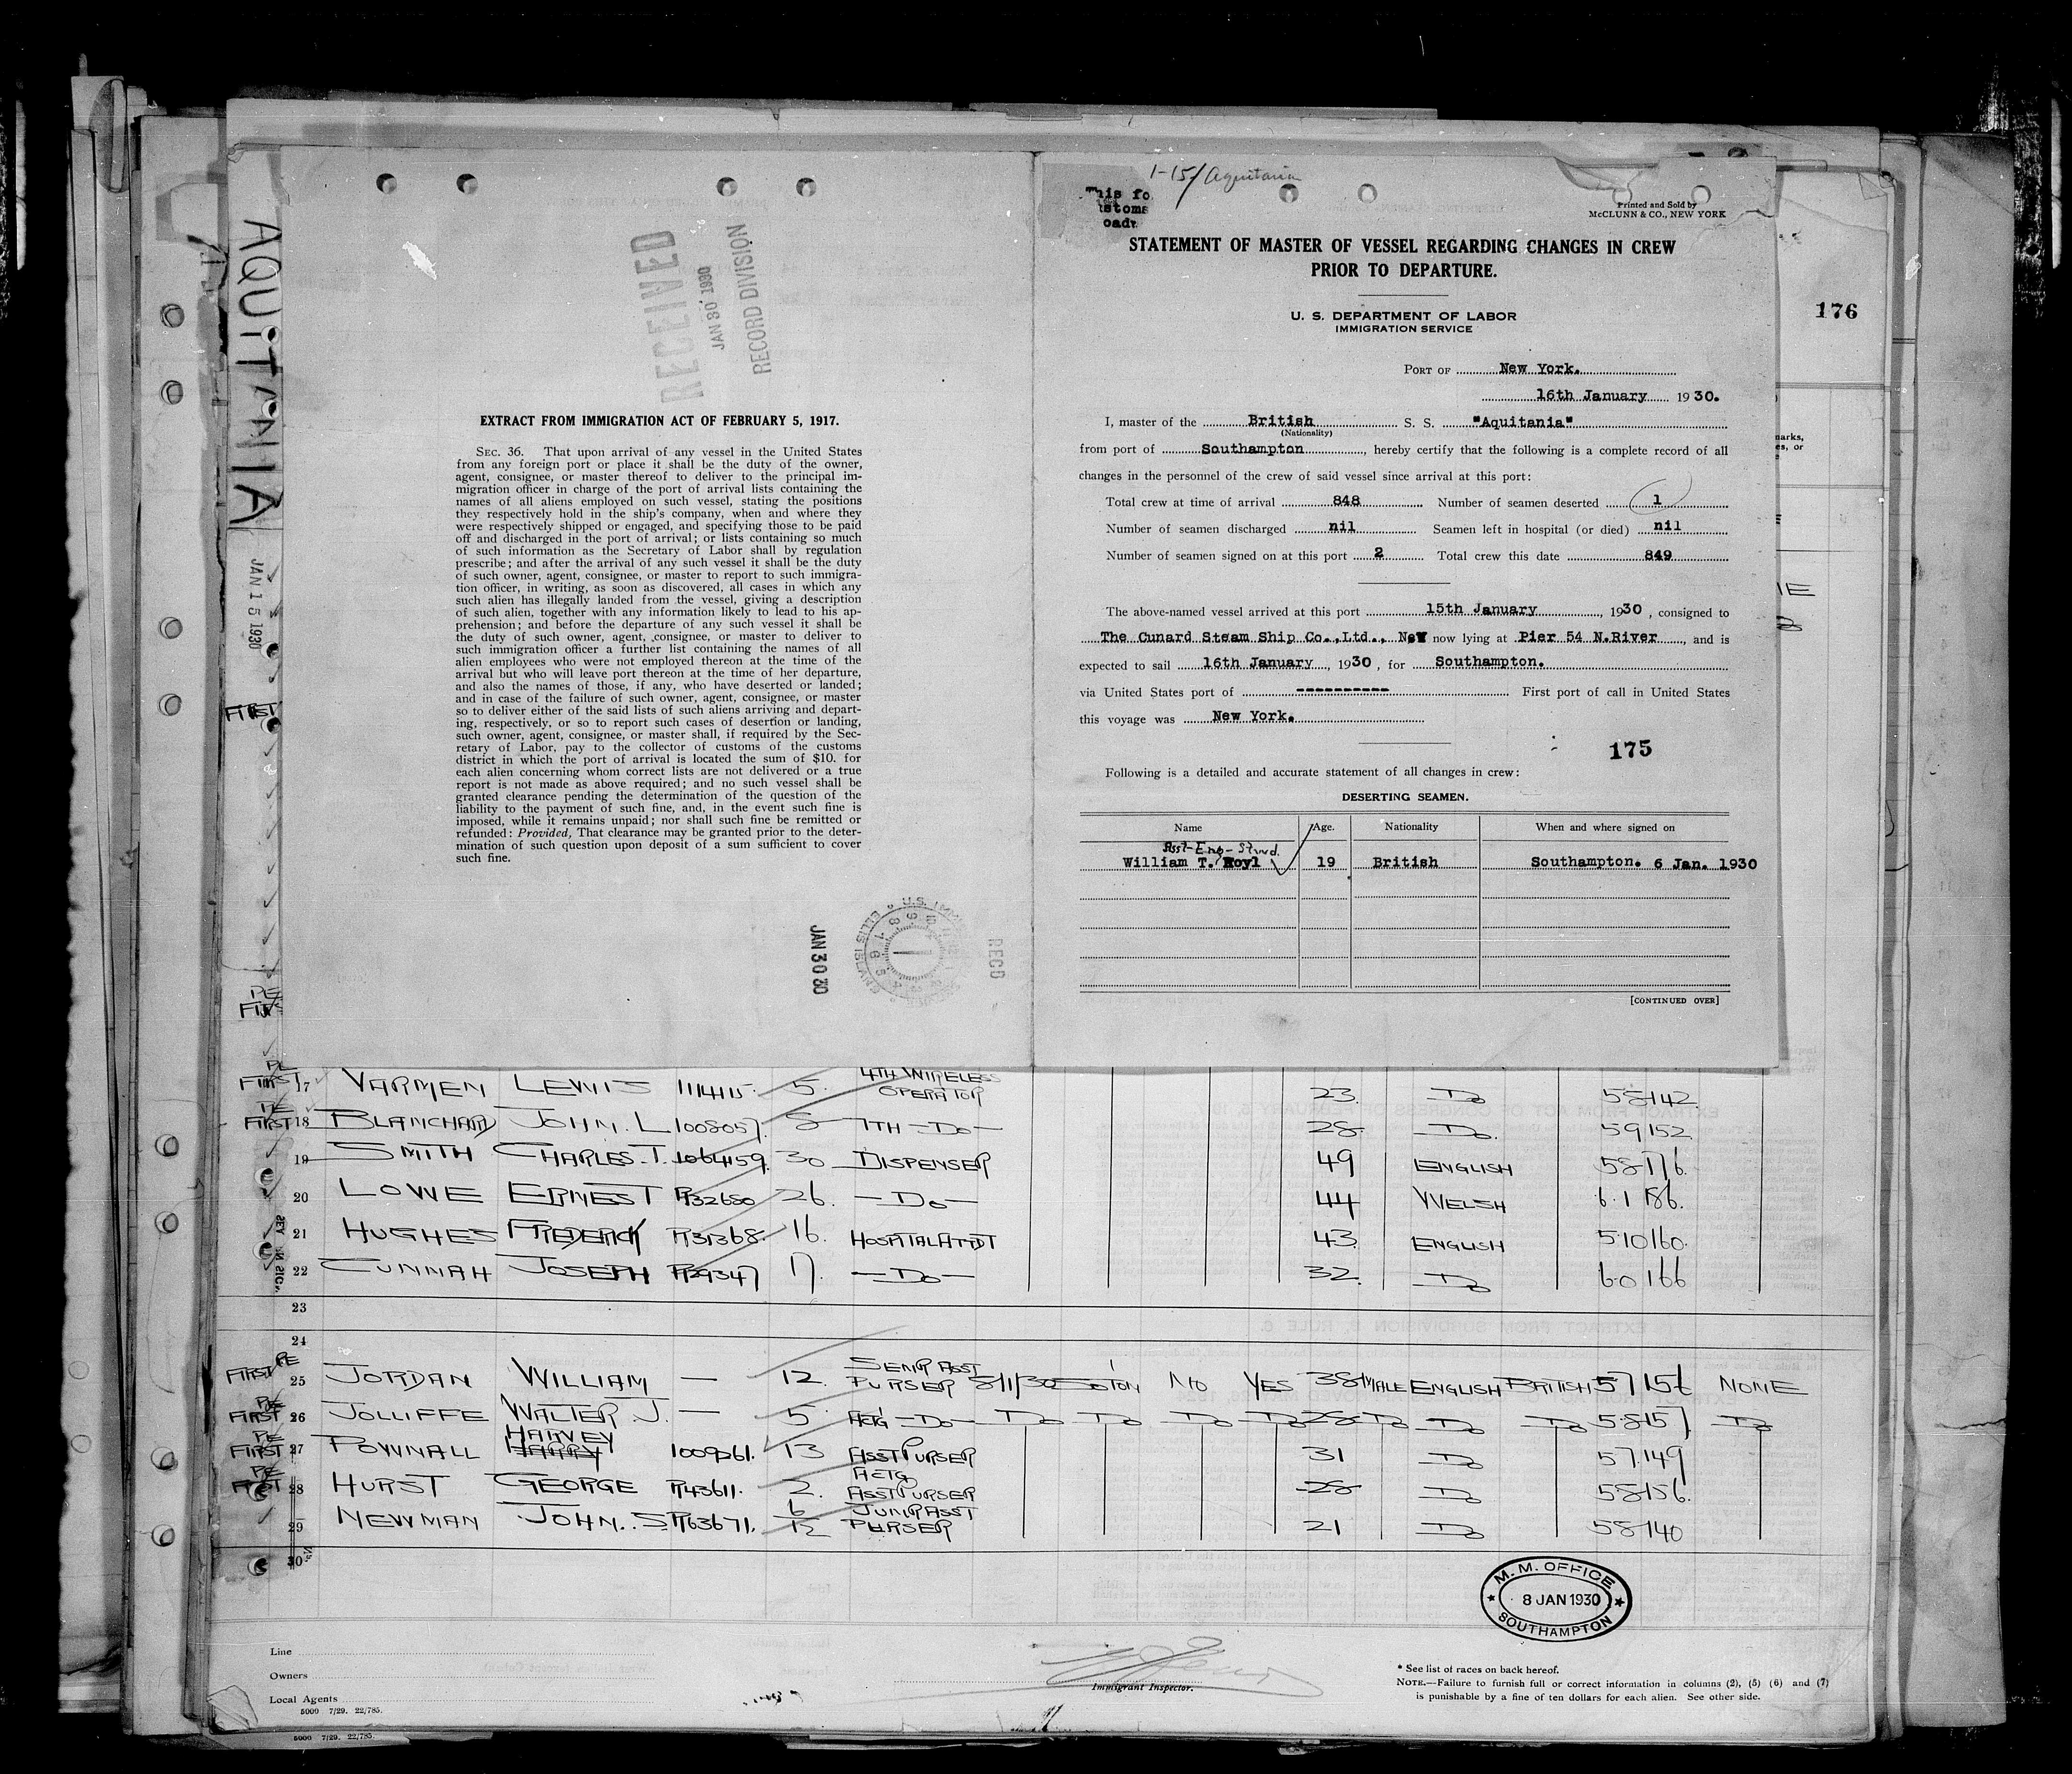 AQUITANIA
JAN 15 1930
RECEIVED
JAN 30 1930
RECORD DIVISION
EXTRACT FROM IMMIGRATION ACT OF FEBRUARY 5, 1917.
SEC. 36. That upon arrival of any vessel in the United States
from any foreign port or place it shall be the duty of the owner,
agent, consignee, or master thereof to deliver to the principal im-
migration officer in charge of the port of arrival lists containing the
names of all aliens employed on such vessel, stating the positions
they respectively hold in the ship's company, when and where they
were respectively shipped or engaged, and specifying those to be paid
off and discharged in the port of arrival; or lists containing so much
of such information as the Secretary of Labor shall by regulation
prescribe; and after the arrival of any such vessel it shall be the duty
of such owner, agent, consignee, or master to report to such immigra-
tion officer, in writing, as soon as discovered, all cases in which any
such alien has illegally landed from the vessel, giving a description
of such alien, together with any information likely to lead to his ap-
prehension; and before the departure of any such vessel it shall be
the duty of such owner, agent, consignee, or master to deliver to
such immigration officer a further list containing the names of all
alien employees who were not employed thereon at the time of the
arrival but who will leave port thereon at the time of her departure,
and also the names of those, if any, who have deserted or landed;
and in case of the failure of such owner, agent, consignee, or master
so to deliver either of the said lists of such aliens arriving and depart-
ing, respectively, or so to report such cases of desertion or landing,
such owner, agent, consignee, or master shall, if required by the Sec-
retary of Labor, pay to the collector of customs of the customs
district in which the port of arrival is located the sum of $10. for
each alien concerning whom correct lists are not delivered or a true
report is not made as above required; and no such vessel shall be
granted clearance pending the determination of the question of the
liability to the payment of such fine, and, in the event such fine is
imposed, while it remains unpaid; nor shall such fine be remitted or
refunded: Provided, That clearance may be granted prior to the deter-
mination of such question upon deposit of a sum sufficient to cover
such fine.
JAN 30 30
RECD
1-15/Aquitania
Printed and Sold by
McCLUNN & CO., NEW YORK
STATEMENT OF MASTER OF VESSEL REGARDING CHANGES IN CREW
PRIOR TO DEPARTURE.
U. S. DEPARTMENT OF LABOR
IMMIGRATION SERVICE
176
PORT OF New York.
16th January 1930.
I, master of the British S. S. "Aquitania"
(Nationality)
from port of Southampton, hereby certify that the following is a complete record of all
changes in the personnel of the crew of said vessel since arrival at this port:
Total crew at time of arrival 848 Number of seamen deserted 1
Number of seamen discharged nil Seamen left in hospital (or died) nil
Number of seamen signed on at this port 2 Total crew this date 849
The above-named vessel arrived at this port 15th January, 1930, consigned to
The Cunard Steam Ship Co.,Ltd., now lying at Pier 54 N.River, and is
expected to sail 16th January, 1930, for Southampton.
via United States port of ---------- First port of call in United States
this voyage was New York.
175
Following is a detailed and accurate statement of all changes in crew:
DESERTING SEAMEN.
Name Age. Nationality When and where signed on
William T. Hoyl 19 British Southampton. 6 Jan. 1930
[CONTINUED OVER]
FIRST 17 VARMEN LEWIS 5 4TH WIRELESS OPERATOR 23 DO 58 142
FIRST 18 BLANCHARD JOHN. L 1008057 8 7TH -DO- 28 DO. 59 152
19 SMITH CHARLES.T. 1064159. 30 DISPENSER 49 ENGLISH 58 176
20 LOWE ERNEST R32680 26 -DO- 44 WELSH 6.1 186.
21 HUGHES FREDERICK R31368 16. HOSPITAL ATTDT 43 ENGLISH 5.10 160.
22 CUNNAH JOSEPH R29347 17. -DO- 32 DO 6.0 166
23
24
FIRST PE 25 JORDAN WILLIAM — 12. SENR ASST PURSER 8/1/30 SOTON NO YES 38 MALE ENGLISH BRITISH 57 156 NONE
FIRST PE 26 JOLLIFFE WALTER J. — 5 ACTG -DO- DO DO DO DO 28 DO DO DO 58 157 DO
FIRST PE 27 POWNALL HARVEY HARRY 1009261. 13 ASST PURSER 31 DO 57 149
FIRST PE 28 HURST GEORGE R43611. 2. ACTG ASST PURSER 28 DO 58 156.
29 NEWMAN JOHN. S. R63671. 6/12 JUNR ASST PURSER 21 DO 58 140
30
M. M. OFFICE
8 JAN 1930
SOUTHAMPTON
Line
Owners
Local Agents
5000 7/29. 22/785.
Immigrant Inspector.
* See list of races on back hereof.
NOTE.—Failure to furnish full or correct information in columns (2), (5) (6) and (7)
is punishable by a fine of ten dollars for each alien. See other side.
5000 7/29. 22/785.